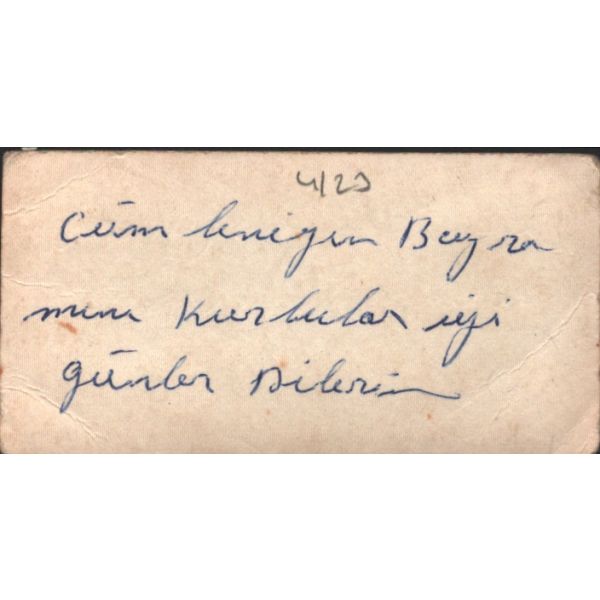 4/23
Cüm lenizin Bayra
mını Kurtular iyi
günler Dilerim